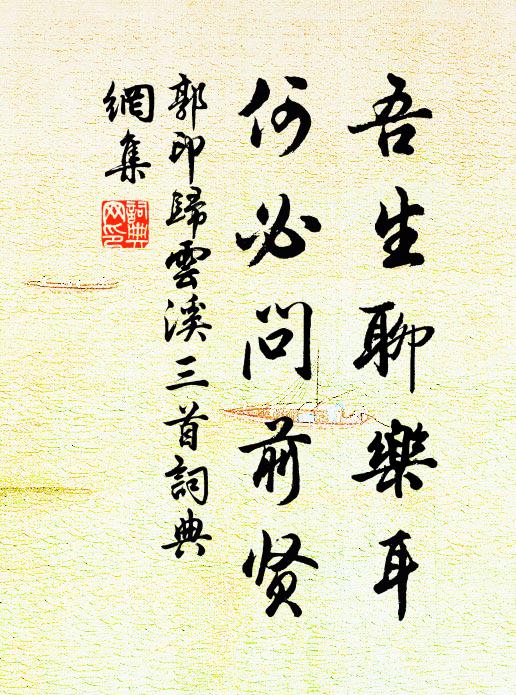 吾生聊樂耳
何必問前贤
郭印歸雲溪三首詞典
網集
詞典
网印